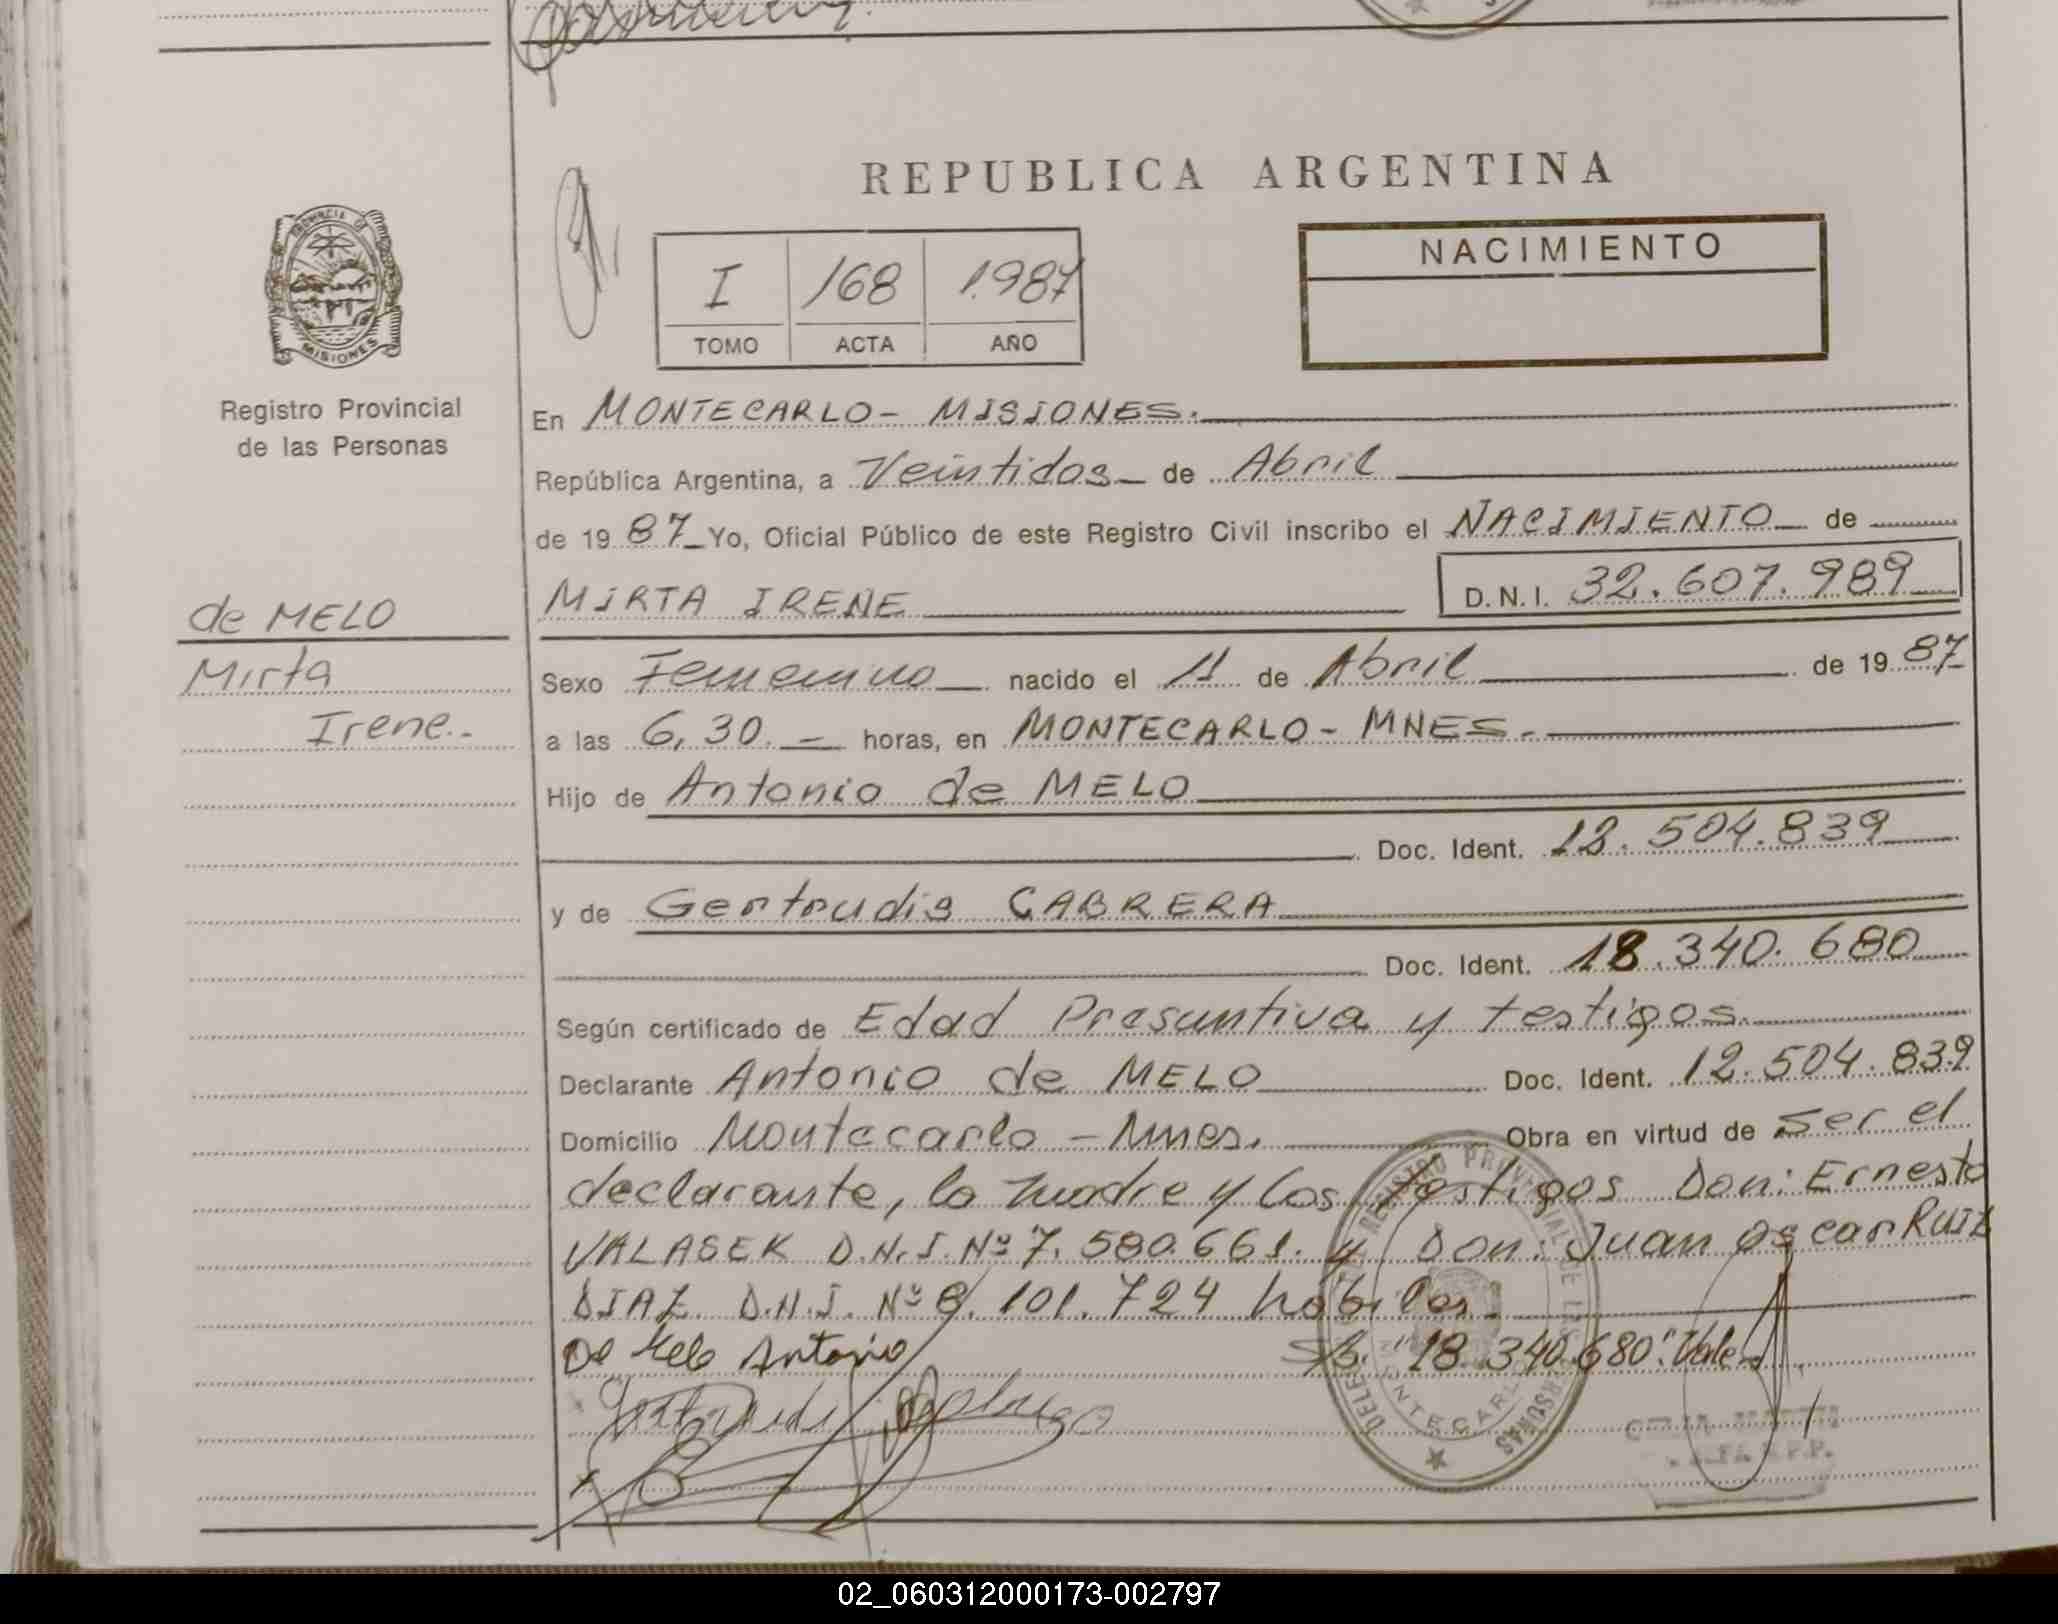 REPUBLICA ARGENTINA
PROVINCIA DE
MISIONES
Registro Provincial
de las Personas
I 168 1.987
TOMO ACTA AÑO
NACIMIENTO
En MONTECARLO - MISIONES.
República Argentina, a Veintidos de Abril
de 19 87 Yo, Oficial Público de este Registro Civil inscribo el NACIMIENTO de
MIRTA IRENE D.N.I. 32.607.989
de MELO
Mirta
Irene.-
Sexo Femenino nacido el 11 de Abril de 19 87
a las 6,30.- horas, en MONTECARLO - MNES.-
Hijo de Antonio de MELO
Doc. Ident. 12.504.839
y de Gertrudis CABRERA
Doc. Ident. 18.340.680
Según certificado de Edad Presuntiva y testigos.
Declarante Antonio de MELO Doc. Ident. 12.504.839
Domicilio Montecarlo - Mnes. Obra en virtud de ser el
declarante, la madre y los testigos Don: Ernesto
VALASEK D.N.I. Nº 7.580.661. y Don: Juan Oscar RUIZ
DIAZ D.N.I. Nº 8.101.724 habiles.
De Melo Antonio S/b. "18.340.680" Vale.
MONTECARLO
02_060312000173-002797